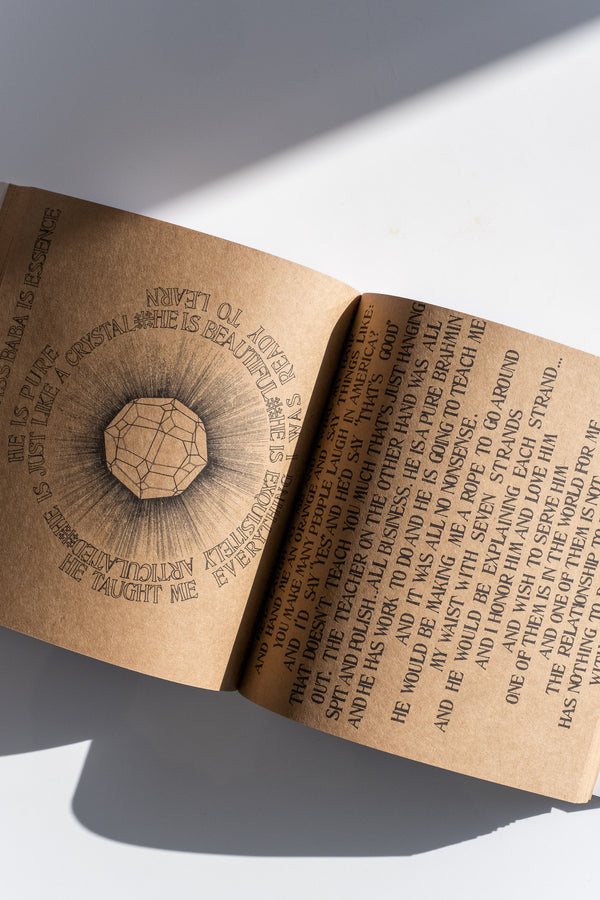 SS BABA IS ESSENCE
HE IS PURE
HE IS JUST LIKE A CRYSTAL
HE IS BEAUTIFUL
HE IS EXQUISITELY
ARTICULATED
READY TO LEARN
I WAS
EVERY
HE TAUGHT ME
THINGS LIKE:
AND HAND ME AN ORANGE AND SAY
YOU MAKE MANY PEOPLE LAUGH IN AMERICA?
AND I'D SAY "YES," AND HE'D SAY "THAT'S GOOD"
THAT DOESN'T TEACH YOU MUCH THAT'S JUST HANGING
OUT. THE TEACHER ON THE OTHER HAND WAS ALL
SPIT AND POLISH, ALL BUSINESS. HE IS A PURE BRAHMIN
AND HE HAS WORK TO DO AND HE IS GOING TO TEACH ME
AND IT WAS ALL NO NONSENSE.
HE WOULD BE MAKING ME A ROPE TO GO AROUND
MY WAIST WITH SEVEN STRANDS
AND HE WOULD BE EXPLAINING EACH STRAND...
AND I HONOR HIM AND LOVE HIM
AND WISH TO SERVE HIM
ONE OF THEM IS IN THE WORLD FOR ME
AND ONE OF THEM IS NOT
THE RELATIONSHIP TO
HAS NOTHING TO D
WITH